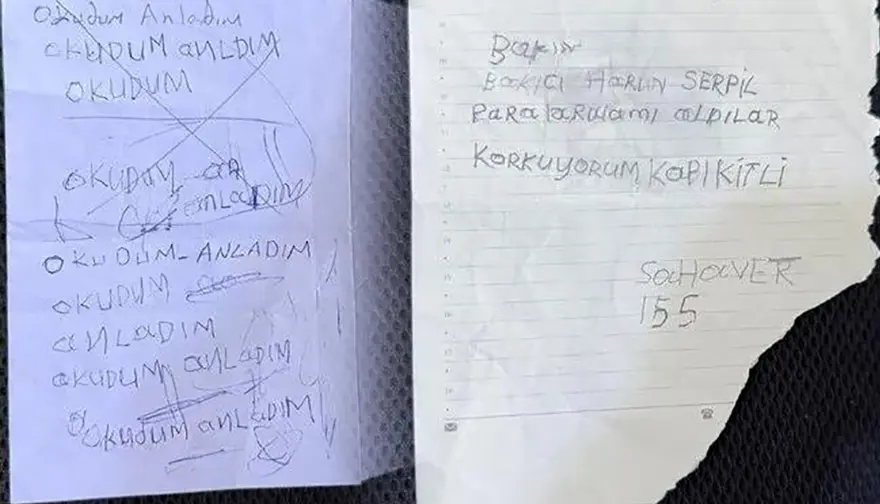 Okudum Anladım
OKUDUM aNLDIM
OKUDUM
OKUDUM aN
aNLaDIM
OKUDUM-ANLADIM
OKUDUM
aNLaDIM
OKUDUM aNLaDIM
OKUDUM aNLaDIM
BaKIN
BaKICI HaRUN SERPİL
PaRaLaRımı aLDILAR
KORKUYORUM KaPI KİTLİ
SaHaVET
155